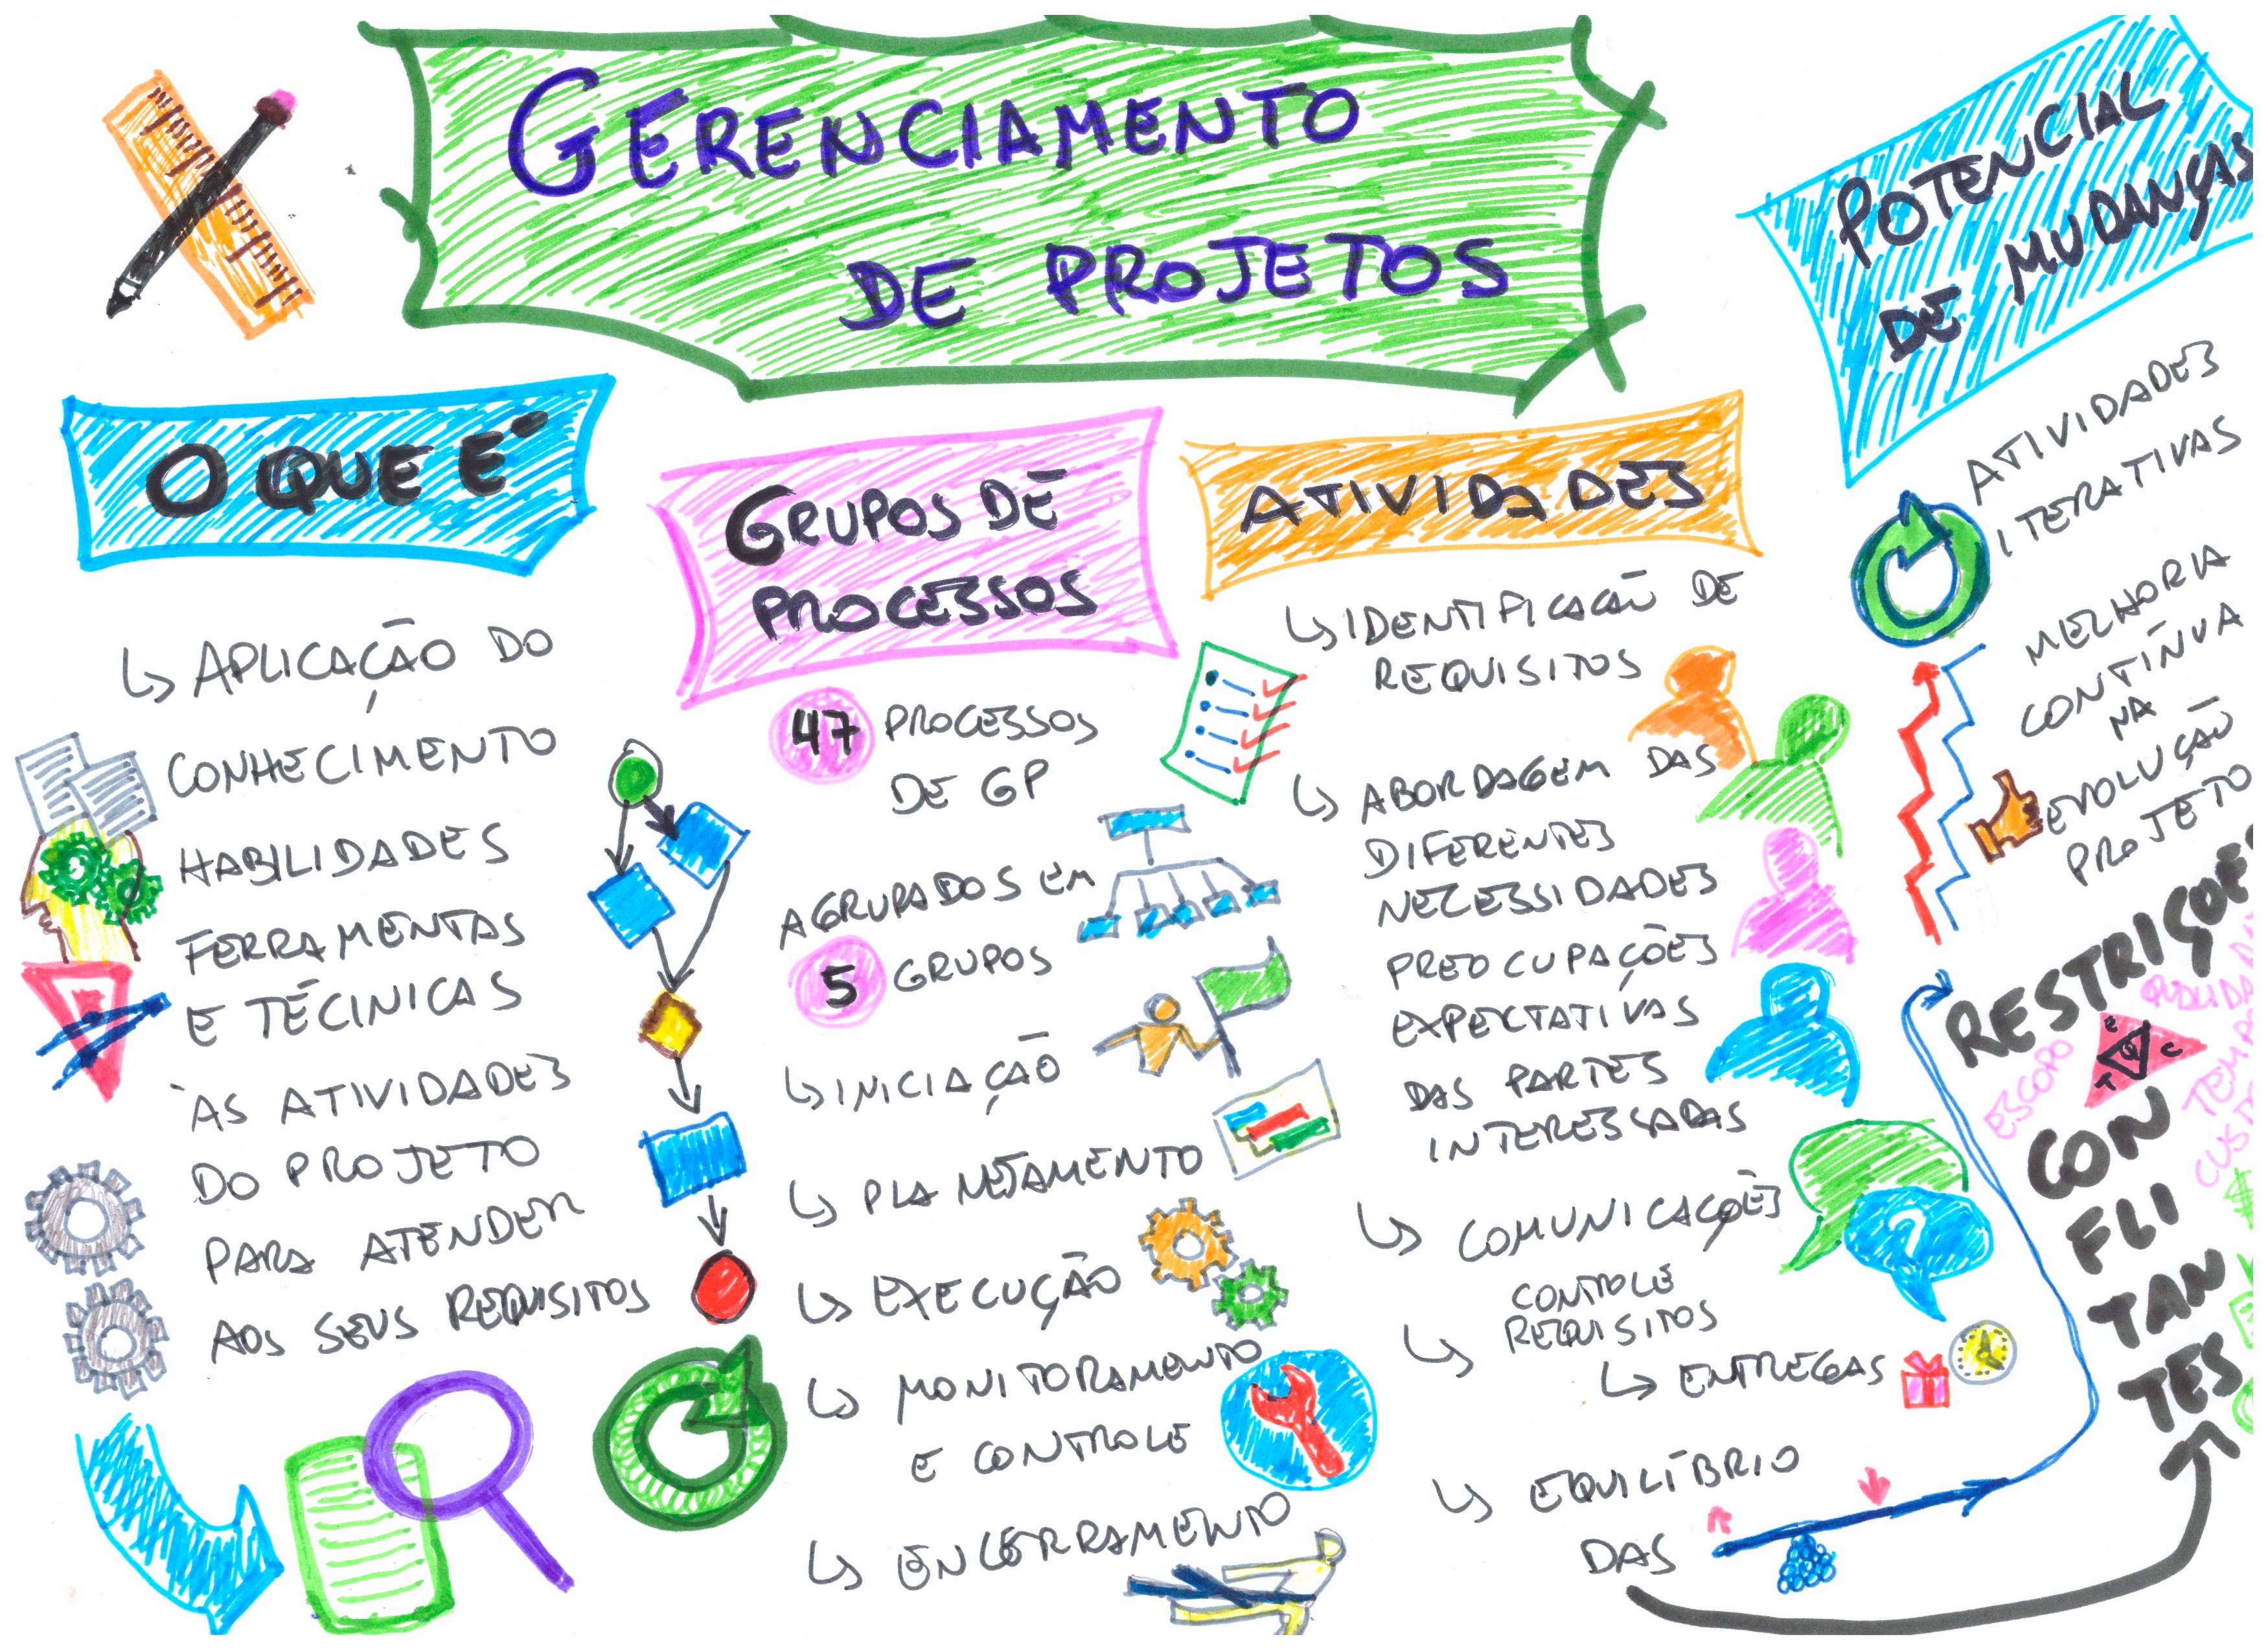 GERENCIAMENTO
DE PROJETOS
O QUE É
↳ APLICAÇÃO DO
CONHECIMENTO
HABILIDADES
FERRAMENTAS
E TÉCINICAS
ÀS ATIVIDADES
DO PROJETO
PARA ATENDER
AOS SEUS REQUISITOS
GRUPOS DE
PROCESSOS
47 PROCESSOS
DE GP
AGRUPADOS EM
5 GRUPOS
↳ INICIAÇÃO
↳ PLANEJAMENTO
↳ EXECUÇÃO
↳ MONITORAMENTO
E CONTROLE
↳ ENCERRAMENTO
ATIVIDADES
↳ IDENTIFICACAÕ DE
REQUISITOS
↳ ABORDAGEM DAS
DIFERENTES
NECESSIDADES
PREOCUPAÇÕES
EXPECTATIVAS
DAS PARTES
INTERESSADAS
↳ COMUNICAÇÕES
↳ CONTROLE
REQUISITOS
↳ ENTREGAS
↳ EQUILÍBRIO
DAS
POTENCIAL
DE MUDANÇAS
ATIVIDADES
ITERATIVAS
MELHORIA
CONTÍNUA
NA
EVOLUÇÃO
PROJETO
RESTRIÇÕES
ESCOPO
E
Q
C
T
CON
FLI
TAN
TES
$